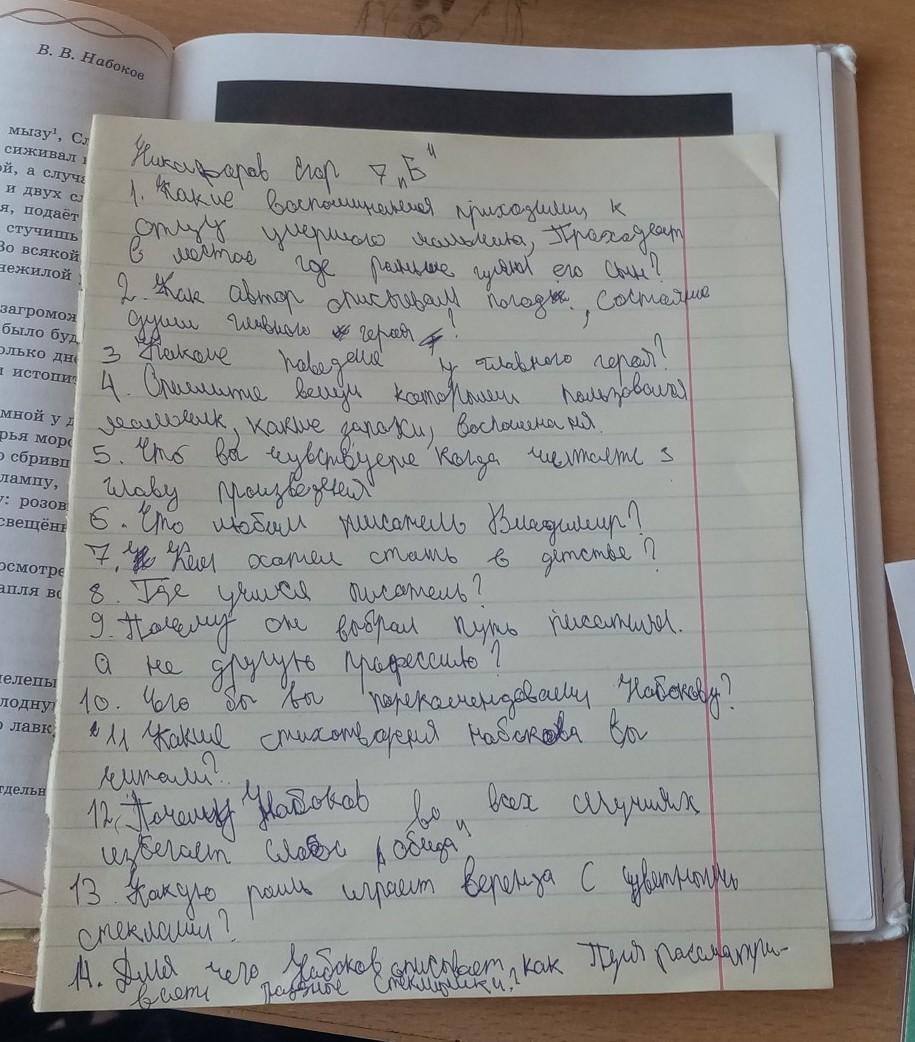 В. В. Набоков
мызу¹, Сл
сиживал
ой, а случа
и двух сл
я, подаёт
стучишь
Во всякой
нежилой
загромож
было буд
олько дне
и истопи
мной у д
рья моро
о сбрив
лампу,
у: розов
свещённ
осмотре
апля во
лодну
о лавк
тдельн
Никифоров Егор 7 „Б"
1. Какие воспоминания приходили к
отцу умершого мальчика, Проходеат
в местое где раньше гулял его сын?
2. Как автор описывал погоду, Состояние
души главного героя?
3 Какое поведение у главного героя?
4. Опишите вещи которыми пользовался
мальчик, какие запахи, воспоминания.
5. Что вы чувствуете когда читаете 3
главу произведения
6. Что любил писатель Владимир?
7. Кем хотел стать в детстве?
8. Где учился писатель?
9. Почему он выбрал путь писателя.
а не другую профессию?
10. Что бы вы порекомендовали Набокову?
11 Какие стихотворения Набокова вы
читали?
12. Почему Набоков во всех случиях
избегает слова „обида"
13. Какую роль играет веренда с цветными
стеклами?
14. Для чего Набоков описывает как Путя рассматри-
вает разные стеклышки?